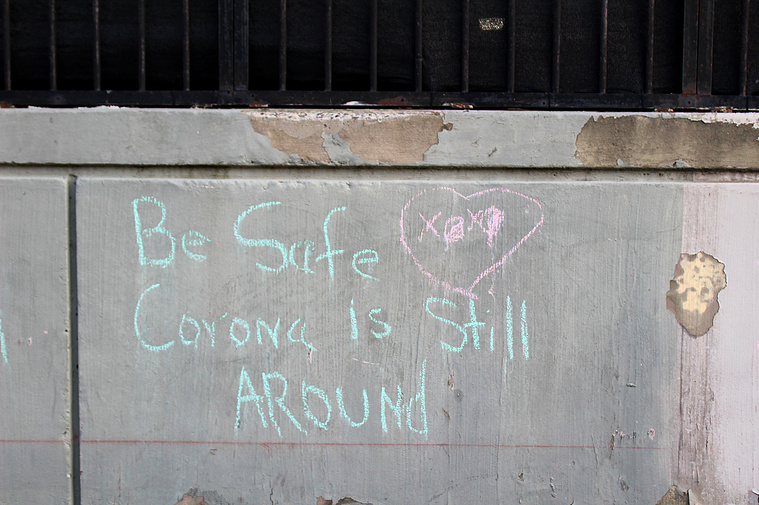 Be Safe xoxo
Corona is Still
AROUNd